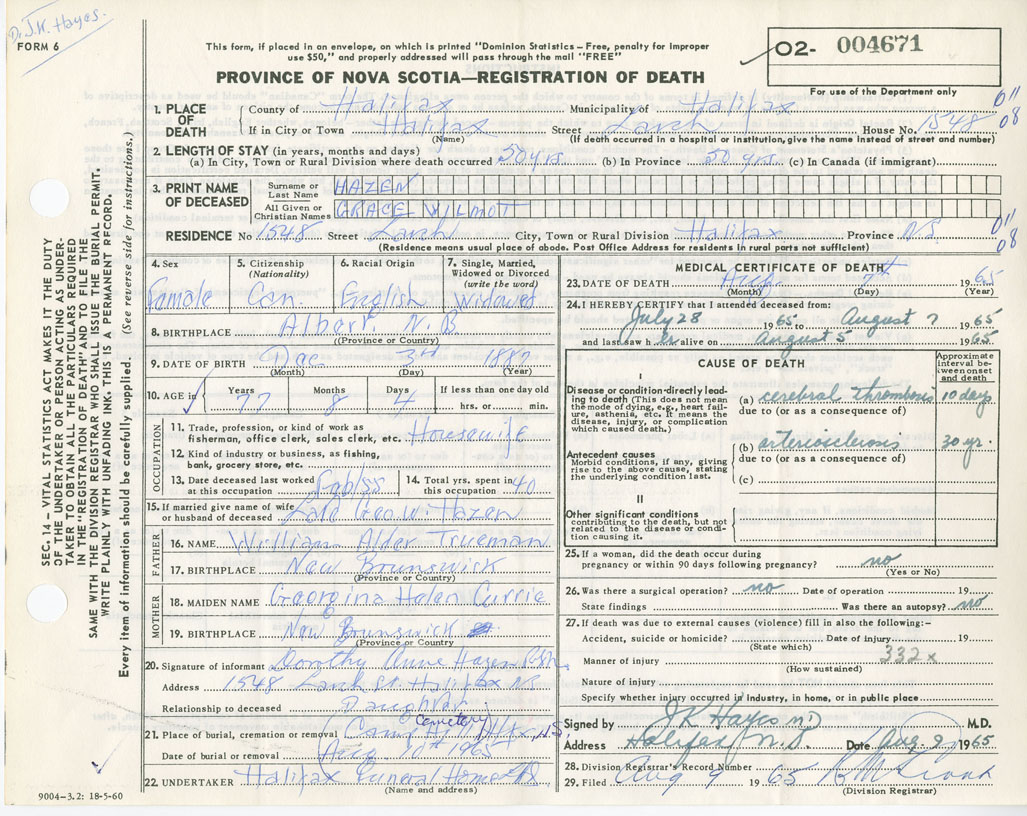 Dr. J.K. Hayes.
FORM 6
This form, if placed in an envelope, on which is printed "Dominion Statistics—Free, penalty for improper
use $50," and properly addressed will pass through the mail "FREE"
PROVINCE OF NOVA SCOTIA—REGISTRATION OF DEATH
02- 004671
For use of the Department only
SEC. 14—VITAL STATISTICS ACT MAKES IT THE DUTY
OF THE UNDERTAKER OR PERSON ACTING AS UNDER-
TAKER TO OBTAIN ALL THE PARTICULARS REQUIRED
IN THE "REGISTRATION OF DEATH" AND TO FILE THE
SAME WITH THE DIVISION REGISTRAR WHO SHALL ISSUE THE BURIAL PERMIT.
WRITE PLAINLY WITH UNFADING INK. THIS IS A PERMANENT RECORD.
Every item of information should be carefully supplied. (See reverse side for instructions.)
1. PLACE OF DEATH
County of Halifax Municipality of Halifax
If in City or Town Halifax Street Larch House No. 1548
(Name) (If death occurred in a hospital or institution, give the name instead of street and number)
011
08
2. LENGTH OF STAY (in years, months and days)
(a) In City, Town or Rural Division where death occurred 50 yrs. (b) In Province 50 yrs. (c) In Canada (if immigrant)
3. PRINT NAME OF DECEASED
Surname or Last Name HAZEN
All Given or Christian Names GRACE WILMOT
RESIDENCE No 1548 Street Larch City, Town or Rural Division Halifax Province N.S.
(Residence means usual place of abode. Post Office Address for residents in rural parts not sufficient)
011
08
4. Sex
Female
5. Citizenship (Nationality)
Can.
6. Racial Origin
English
7. Single, Married, Widowed or Divorced (write the word)
Widowed
8. BIRTHPLACE Albert, N.B
(Province or Country)
9. DATE OF BIRTH Dec 3rd 1887
(Month) (Day) (Year)
10. AGE in
Years 77 Months 8 Days 4
If less than one day old
hrs. or min.
OCCUPATION
11. Trade, profession, or kind of work as
fisherman, office clerk, sales clerk, etc. Housewife
12. Kind of industry or business, as fishing,
bank, grocery store, etc.
13. Date deceased last worked
at this occupation
14. Total yrs. spent in
this occupation 40
15. If married give name of wife
or husband of deceased Late Geo. W. Hazen
FATHER
16. NAME William Alder Trueman
17. BIRTHPLACE New Brunswick
(Province or Country)
MOTHER
18. MAIDEN NAME Georgina Helen Currie
19. BIRTHPLACE New Brunswick
(Province or Country)
20. Signature of informant Dorothy Anne Hazen
Address 1548 Larch St. Halifax NS
Relationship to deceased Daughter
21. Place of burial, cremation or removal Camp Hill Cemetery Hfx, N.S.
Date of burial or removal Aug. 10th 1965
22. UNDERTAKER Halifax Funeral Home
(Name and address)
9004—3.2: 18-5-60
MEDICAL CERTIFICATE OF DEATH
23. DATE OF DEATH Aug. 7th 1965
(Month) (Day) (Year)
24. I HEREBY CERTIFY that I attended deceased from:
July 28 1965 to August 7 1965
and last saw her alive on August 5 1965
CAUSE OF DEATH
Approximate interval between onset and death
I
Disease or condition directly lead-
ing to death (This does not mean
the mode of dying, e.g., heart fail-
ure, asthenia, etc. It means the
disease, injury, or complication
which caused death.)
(a) cerebral thrombosis 10 days
due to (or as a consequence of)
Antecedent causes
Morbid conditions, if any, giving
rise to the above cause, stating
the underlying condition last.
(b) arteriosclerosis 30 yr.
due to (or as a consequence of)
(c)
II
Other significant conditions
contributing to the death, but not
related to the disease or condi-
tion causing it.
25. If a woman, did the death occur during
pregnancy or within 90 days following pregnancy? no
(Yes or No)
26. Was there a surgical operation? no Date of operation 19
State findings Was there an autopsy? no
27. If death was due to external causes (violence) fill in also the following:—
Accident, suicide or homicide? Date of injury 19
(State which)
332x
Manner of injury
(How sustained)
Nature of injury
Specify whether injury occurred in industry, in home, or in public place
Signed by J K Hayes MD M.D.
Address Halifax N.S. Date Aug 9 1965
28. Division Registrar's Record Number
29. Filed Aug 9 1965
(Division Registrar)